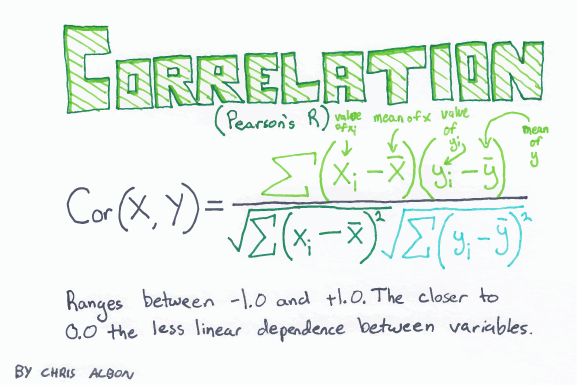 CORRELATION
(Pearson's R)
value of xᵢ
mean of x
value of yᵢ
mean of y
Cor(X, Y) = ∑(xᵢ − x̄)(yᵢ − ȳ) / √∑(xᵢ − x̄)² √∑(yᵢ − ȳ)²
Ranges between -1.0 and +1.0. The closer to
0.0 the less linear dependence between variables.
BY CHRIS ALBON